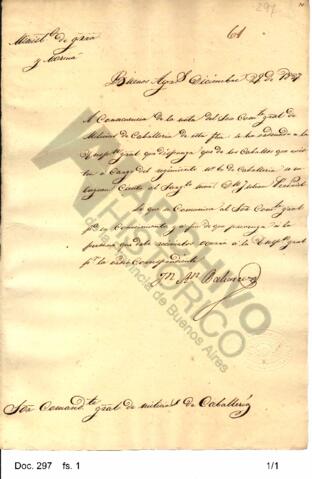 297
61
Minist.º de grra
y Marina
Buenos Ay.s Diciembre 29 de 1827
A consecuencia de la nota del Sor Com.te gral de
Milicias de Caballeria de esta fha se ha ordenado a la
Insp.on gral que disponga que de los Caballos que exis
ten a cargo del regimiento N.º 6 de Caballeria se en
treguen Ciento al Sarg.to mor D.n Julian
Lo que se comunica al Sor Com.te gral
p.a su conocimiento, y a fin de que prevenga a la
persona que debe recivirlos ocurra a la Insp.on gral
p.r la orden correspondiente
Balcarce
Sor Comand.te gral de milicias de Caballeria
ARCHIVO
HISTORICO
de la Provincia de Buenos Aires
Doc. 297 fs. 1 1/1